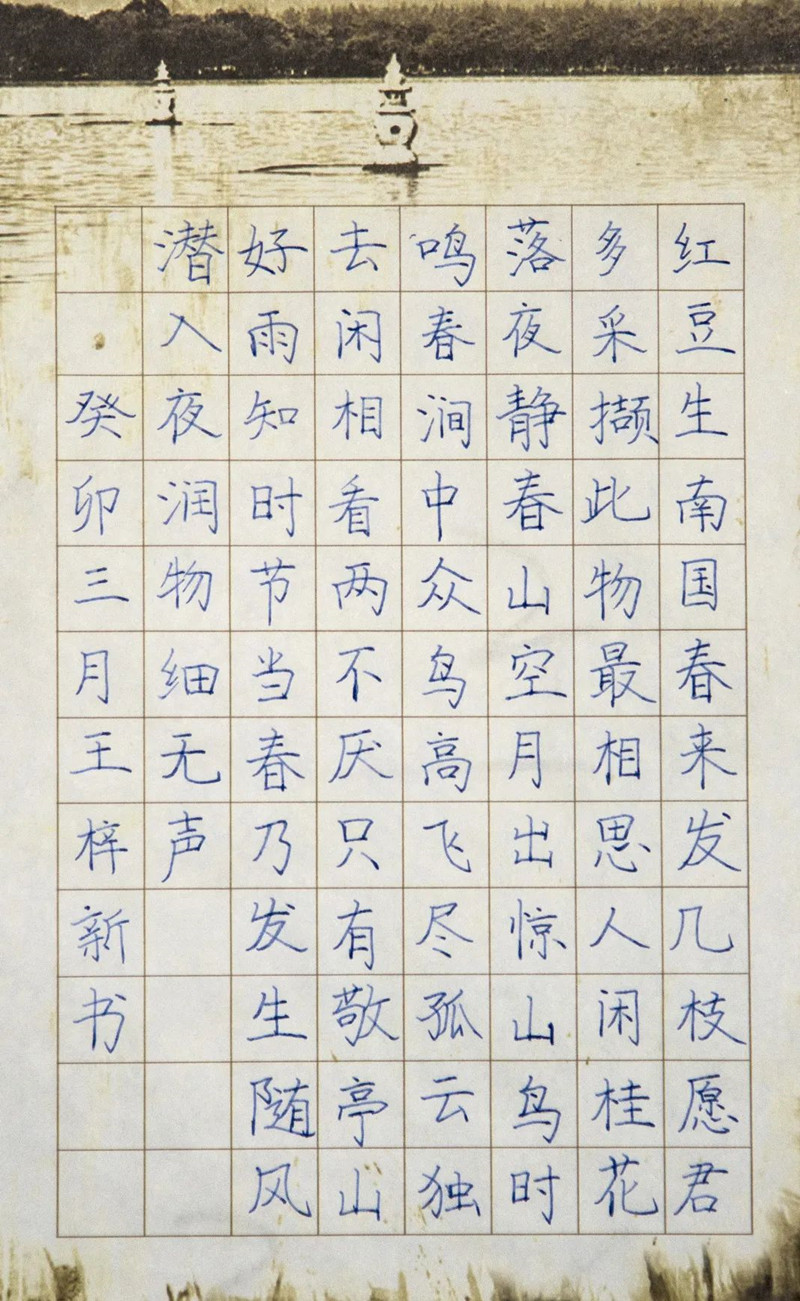 红豆生南国春来发几枝愿君
多采撷此物最相思人闲桂花
落夜静春山空月出惊山鸟时
鸣春涧中众鸟高飞尽孤云独
去闲相看两不厌只有敬亭山
好雨知时节当春乃发生随风
潜入夜润物细无声
癸卯三月王梓新书